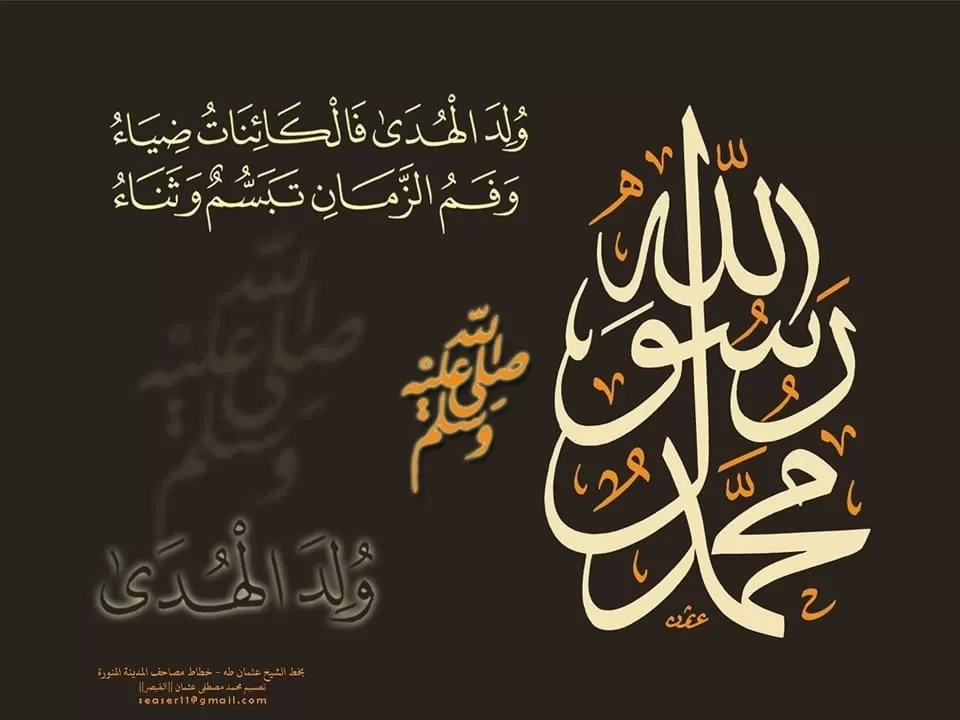 وُلِدَ الْهُدَىٰ فَالْكَائِنَاتُ ضِيَاءُ
وَفَمُ الزَّمَانِ تَبَسُّمٌ وَثَنَاءُ
محمد رسول الله
عثمن
صلى الله عليه وسلم
صلى الله عليه وسلم
وُلِدَ الْهُدَىٰ
بخط الشيخ عثمان طه - خطاط مصاحف المدينة المنورة
تصميم محمد مصطفى عثمان ||القيصر||
seaser11@gmail.com